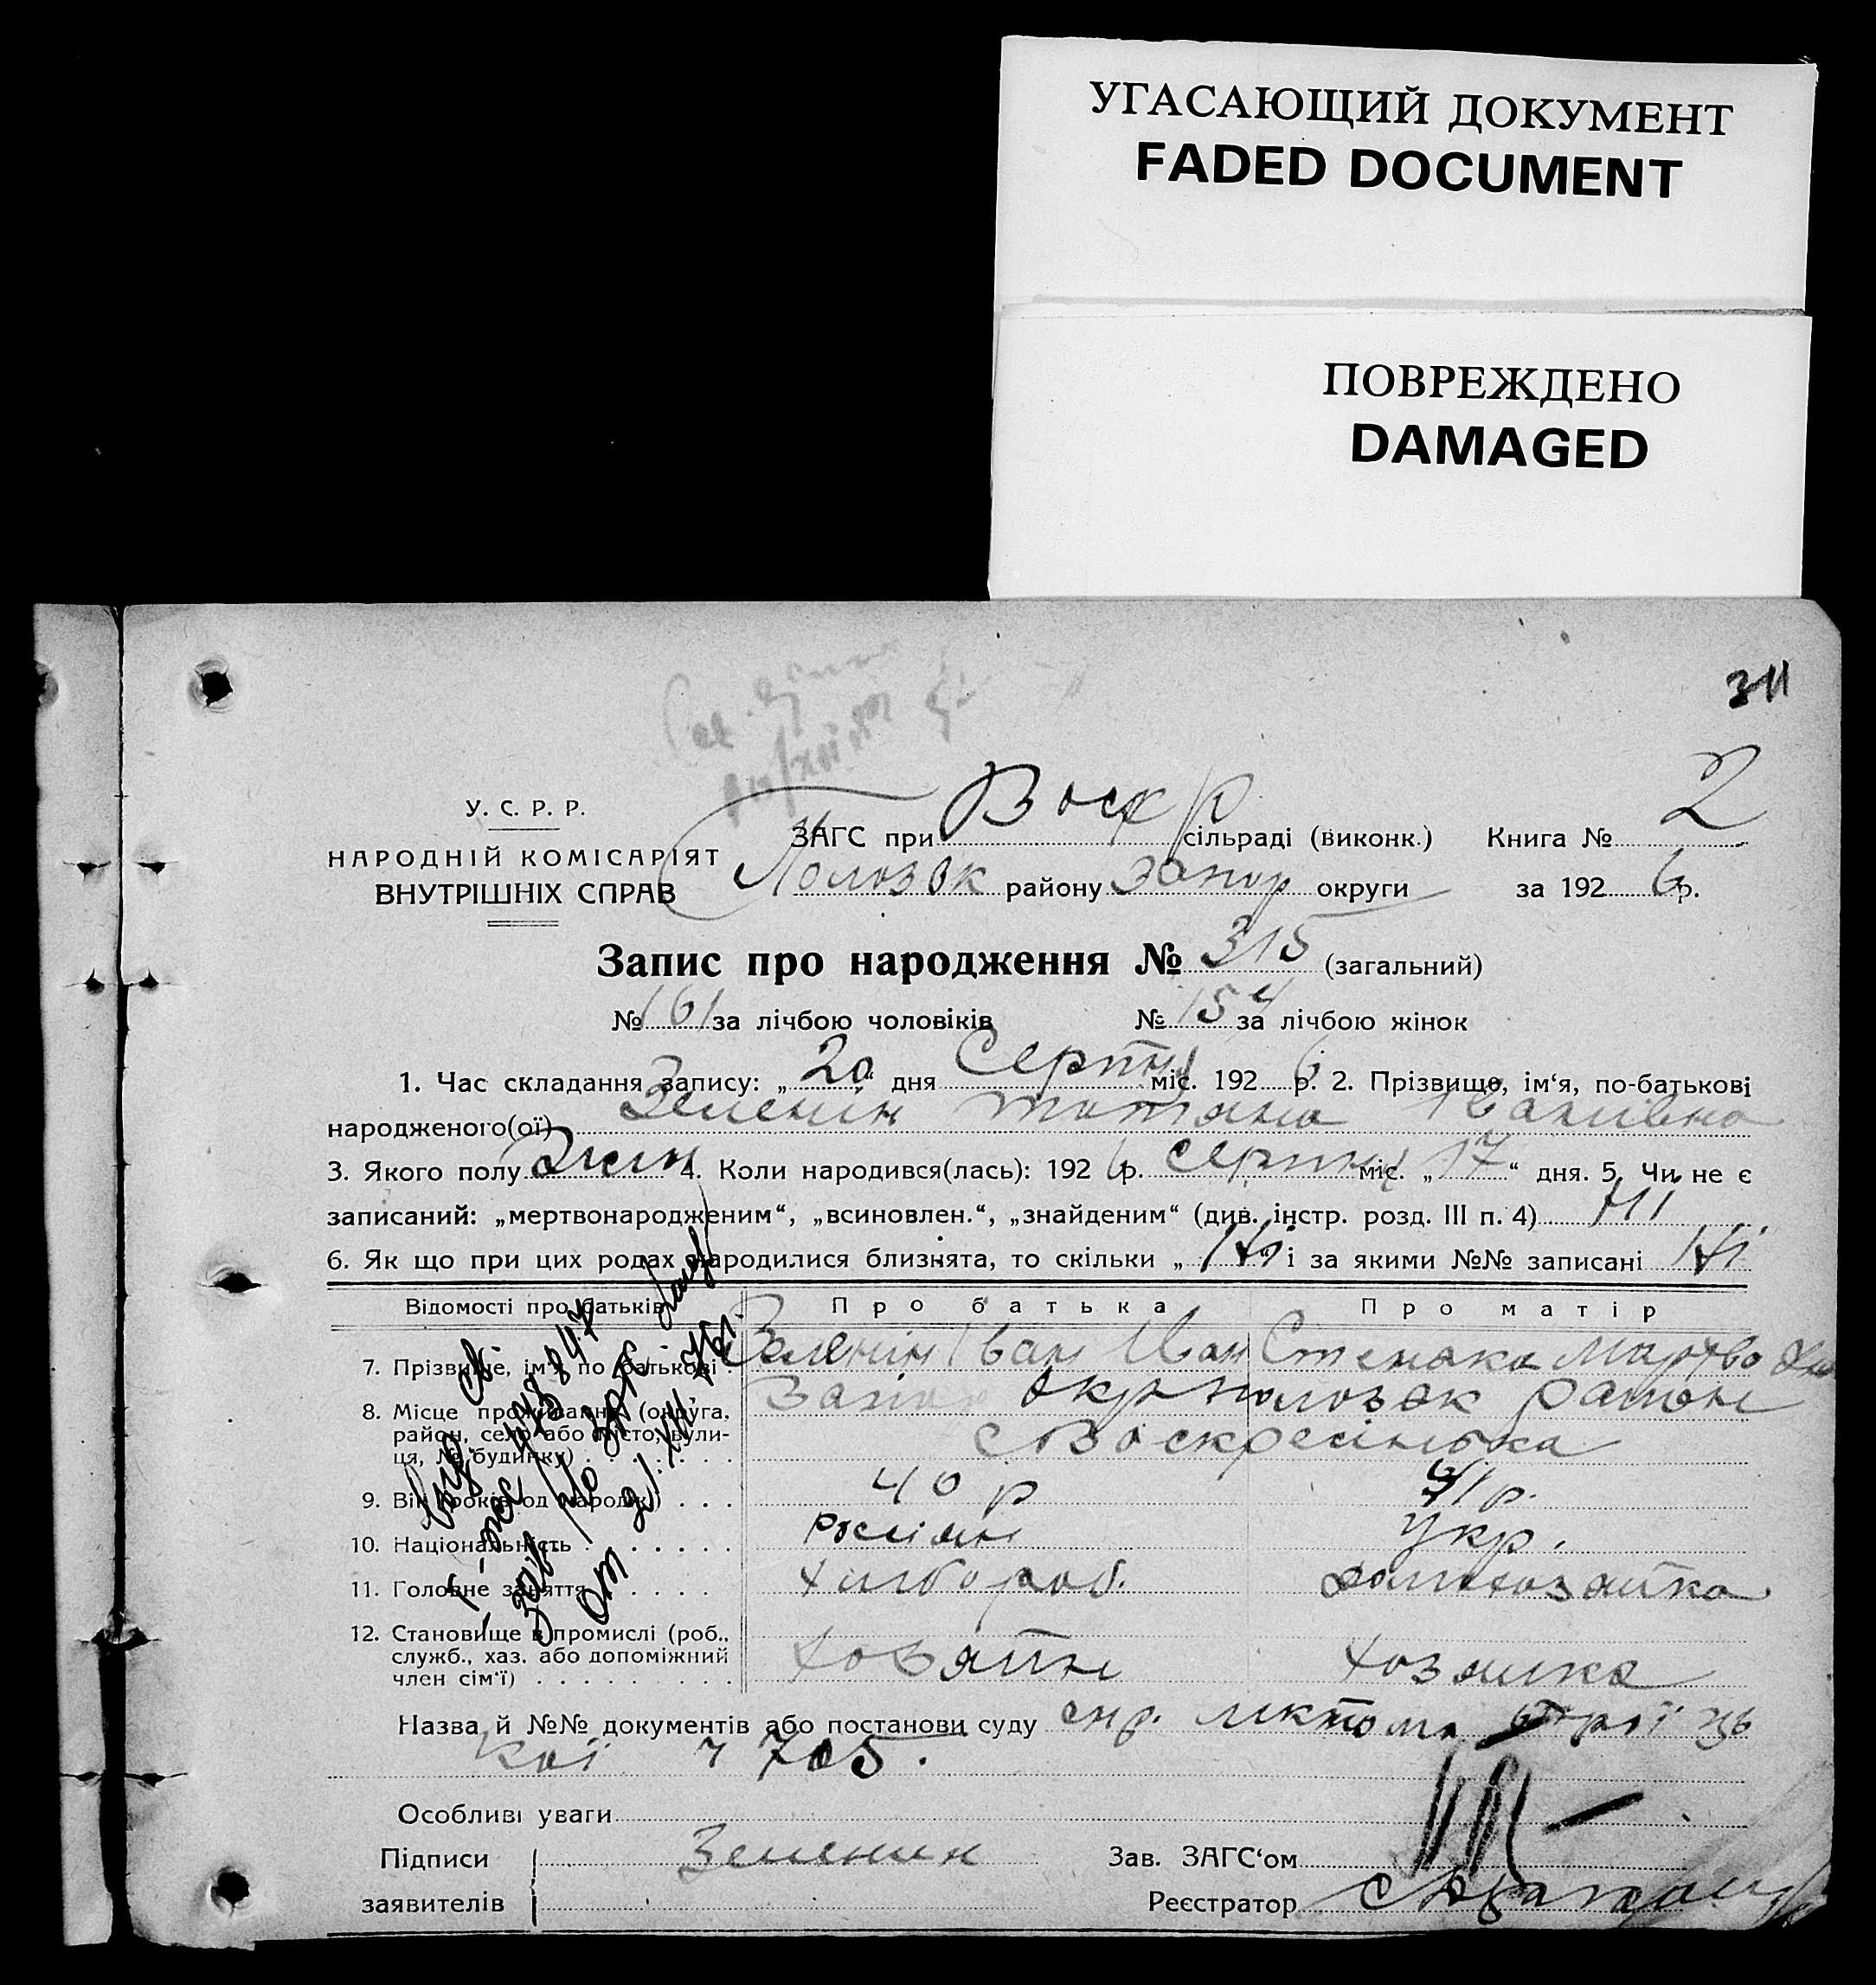 УГАСАЮЩИЙ ДОКУМЕНТ
FADED DOCUMENT
ПОВРЕЖДЕНО
DAMAGED
311
У. С. Р. Р.
НАРОДНІЙ КОМІСАРІЯТ
ВНУТРІШНІХ СПРАВ
ЗАГС при Воскр сільраді (виконк.) Книга № 2
Полозек району Запор округи за 1926 р.
Запис про народження № 315 (загальний)
№ 161 за лічбою чоловіків № 154 за лічбою жінок
1. Час складання запису: „20“ дня Серпня міс. 1926 р. 2. Прізвище, ім‘я, по-батькові
народженого(ої) Зеленін Татяна Іванівна
3. Якого полу жін 4. Коли народився(лась): 1926 р. серпня міс. „17“ дня. 5. Чи не є
записаний: „мертвонародженим“, „всиновлен.“, „знайденим“ (див. інстр. розд. III п. 4) Ні
6. Як що при цих родах народилися близнята, то скільки „Ні“ і за якими №№ записані Ні
Відомості про батьків Про батька Про матір
7. Прізвище, ім‘я, по батькові Зеленін Іван Иван
8. Місце проживання (округа, Запо окр Полозек район
район, село або місто, вули- с Воскресінька
ця, № будинку)
9. Вік (років од народж.) 40 р 41 р.
10. Національність Росіян Укр.
11. Головне заняття Хлібороб. домохозяйка
12. Становище в промислі (роб.,
служб., хаз. або допоміжний Хозяїн Хозяйка
член сім‘ї)
Назва й №№ документів або постанови суду
кої 705.
Особливі уваги
Підписи Зеленин Зав. ЗАГС‘ом
заявителів Реєстратор